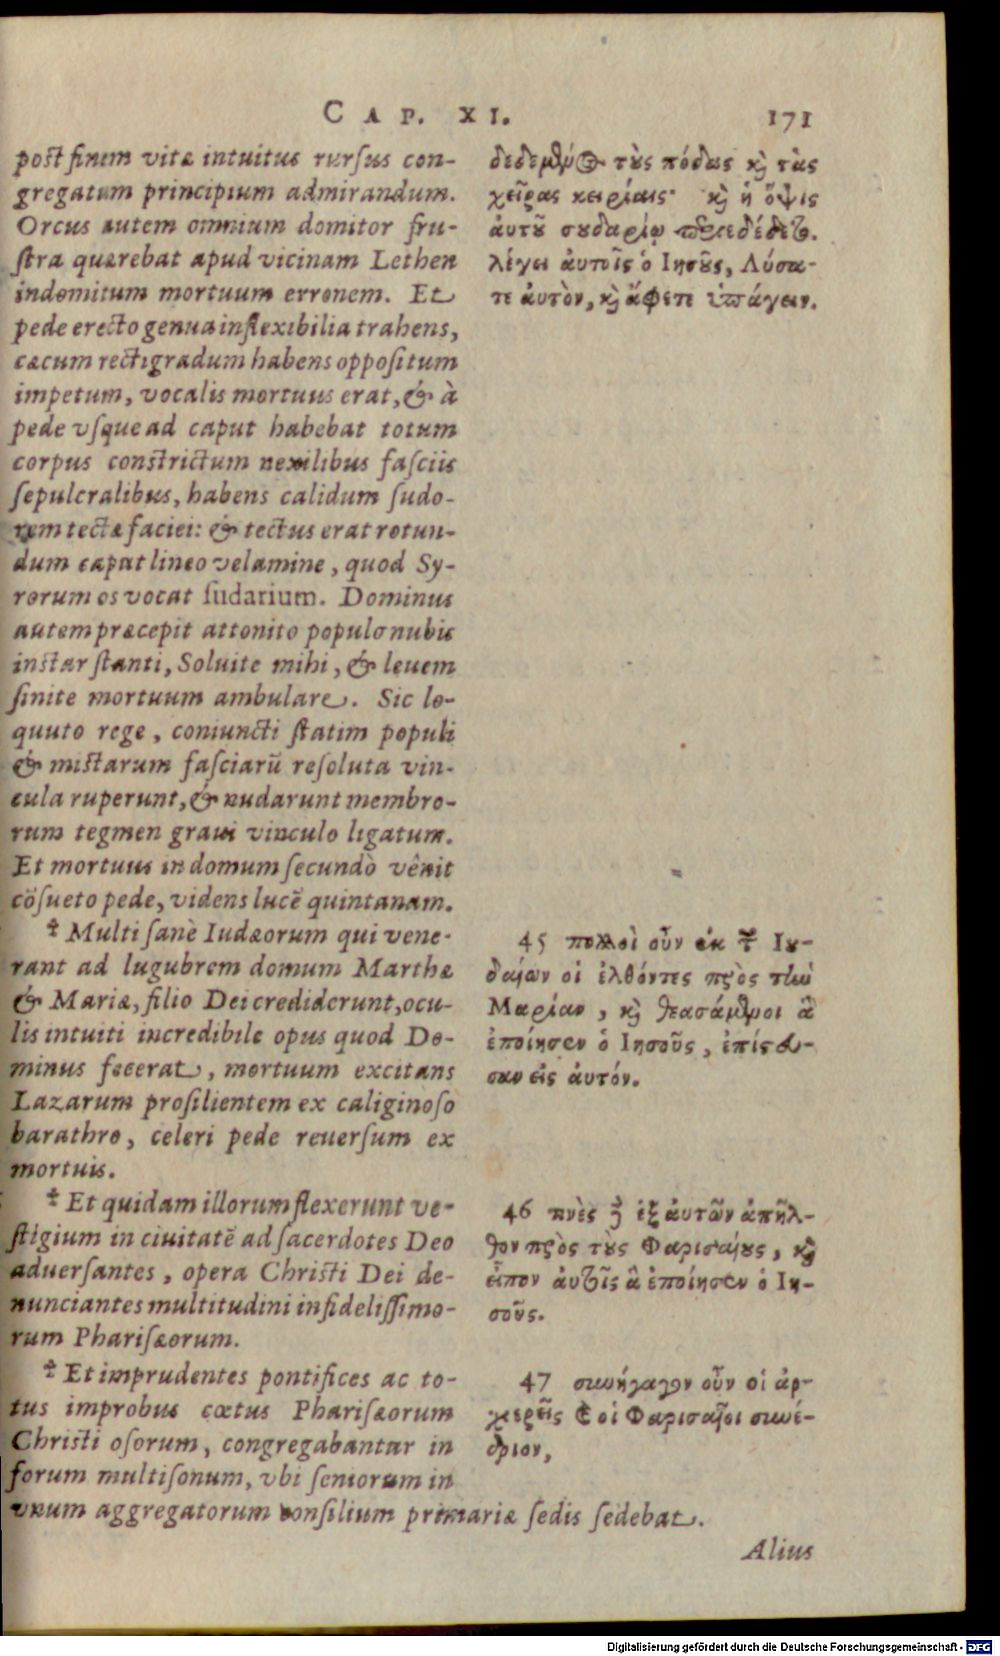 CAP. XI. 171
post finem vitæ intuitus rursus con-
gregatum principium admirandum.
Orcus autem omnium domitor fru-
stra quærebat apud vicinam Lethen
indomitum mortuum erronem. Et
pede erecto genua inflexibilia trahens,
cæcum rectigradum habens oppositum
impetum, vocalis mortuus erat, & à
pede vsque ad caput habebat totum
corpus constrictum nexilibus fasciis
sepulcralibus, habens calidum sudo-
rem tectæ faciei: & tectus erat rotun-
dum caput lineo velamine, quod Sy-
rorum os vocat sudarium. Dominus
autem præcepit attonito populo nubis
instar stanti, Soluite mihi, & leuem
sinite mortuum ambulare. Sic lo-
quuto rege, coniuncti statim populi
& mistarum fasciarū resoluta vin-
cula ruperunt, & nudarunt membro-
rum tegmen graui vinculo ligatum.
Et mortuus in domum secundò vênit
cōsueto pede, videns lucē quintanam.
* Multi sanè Iudæorum qui vene-
rant ad lugubrem domum Marthæ
& Mariæ, filio Dei crediderunt, ocu-
lis intuiti incredibile opus quod Do-
minus fecerat, mortuum excitans
Lazarum prosilientem ex caliginoso
barathro, celeri pede reuersum ex
mortuis.
* Et quidam illorum flexerunt ve-
stigium in ciuitatē ad sacerdotes Deo
aduersantes, opera Christi Dei de-
nunciantes multitudini infidelissimo-
rum Pharisæorum.
* Et imprudentes pontifices ac to-
tus improbus cœtus Pharisæorum
Christi osorum, congregabantur in
forum multisonum, vbi seniorum in
vnum aggregatorum consilium primariæ sedis sedebat.
δεδεμένος τὺς πόδας κỳ τὰς
χεῖρας κειρίαις· κỳ ἡ ὄψις
ἀυτοῦ σουδαρίῳ περιεδέδετο.
λέγει ἀυτοῖς ὁ Ιησοῦς, Λύσα-
τε ἀυτὸν, κỳ ἄφετε ὑπάγειν.
45 πολλοὶ οὖν ἐκ τῶν Ιου-
δαίων οἱ ἐλθόντες πρὸς τὴν
Μαρίαν, κỳ θεασάμενοι ἃ
ἐποίησεν ὁ Ιησοῦς, ἐπίστευ-
σαν εἰς ἀυτόν.
46 τινὲς δὲ ἐξ ἀυτῶν ἀπῆλ-
θον πρὸς τοὺς Φαρισαίους, κỳ
εἶπον ἀυτοῖς ἃ ἐποίησεν ὁ Ιη-
σοῦς.
47 συνήγαγον οὖν οἱ ἀρ-
χιερεῖς κỳ οἱ Φαρισαῖοι συνέ-
δριον,
Alius
Digitalisierung gefördert durch die Deutsche Forschungsgemeinschaft - DFG